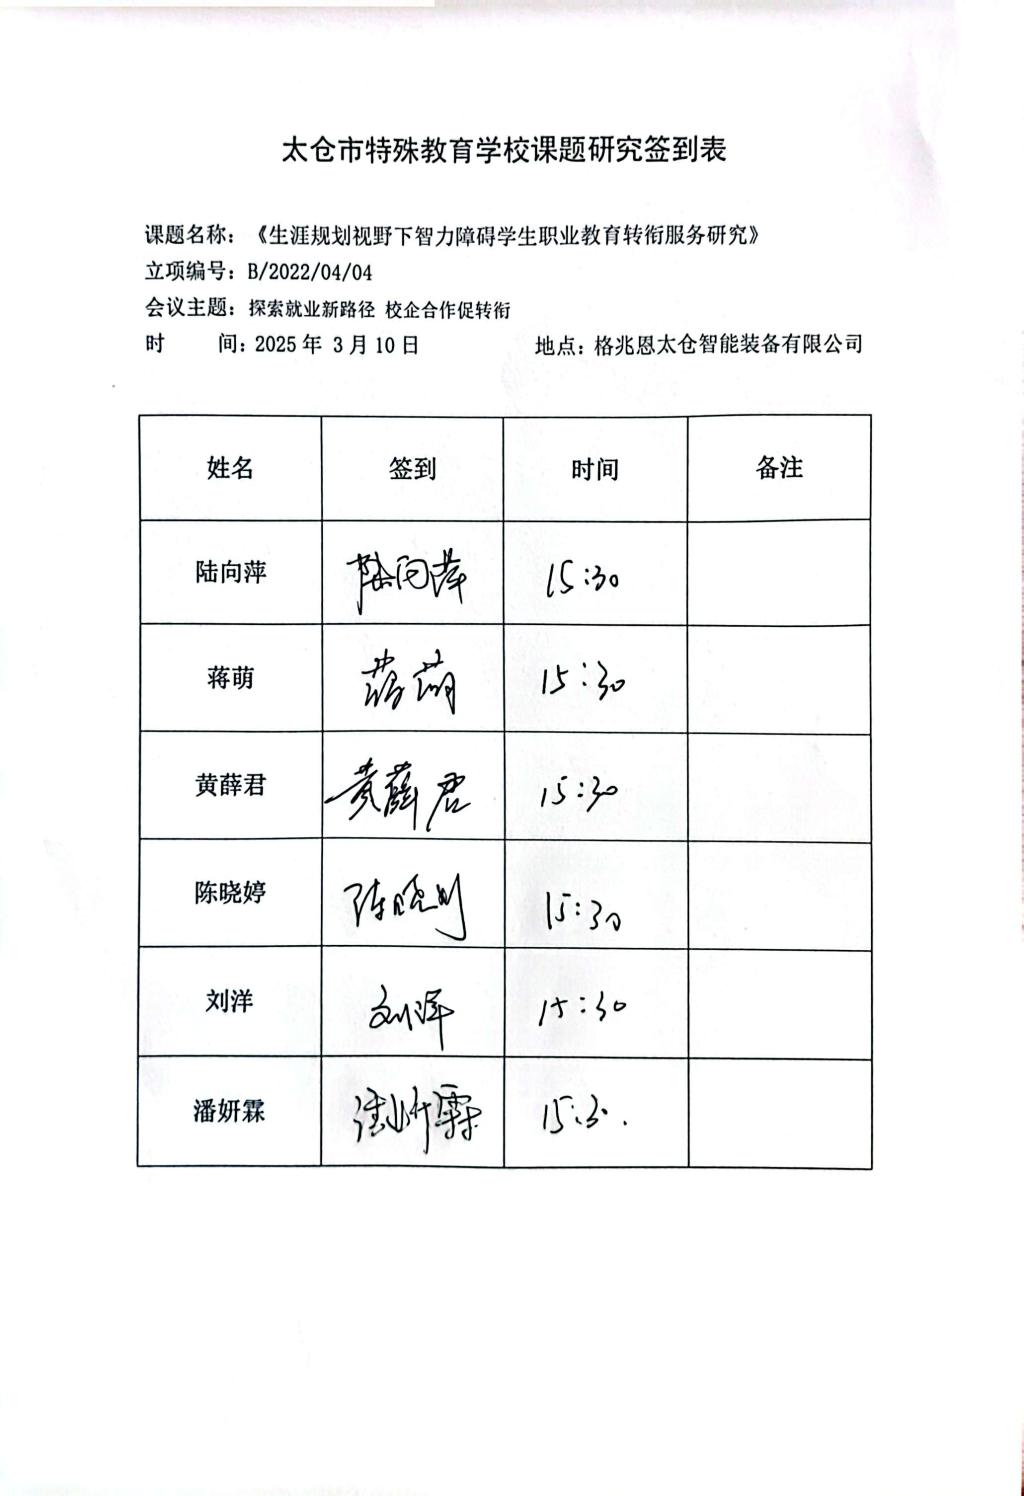 太仓市特殊教育学校课题研究签到表
课题名称：《生涯规划视野下智力障碍学生职业教育转衔服务研究》
立项编号：B/2022/04/04
会议主题：探索就业新路径 校企合作促转衔
时 间：2025年 3月10日 地点：格兆恩太仓智能装备有限公司
姓名 签到 时间 备注
陆向萍 陆向萍 15:30
蒋萌 蒋萌 15:30
黄薛君 黄薛君 15:30
陈晓婷 陈晓 15:30
刘洋 刘洋 15:30
潘妍霖 潘妍霖 15:30.